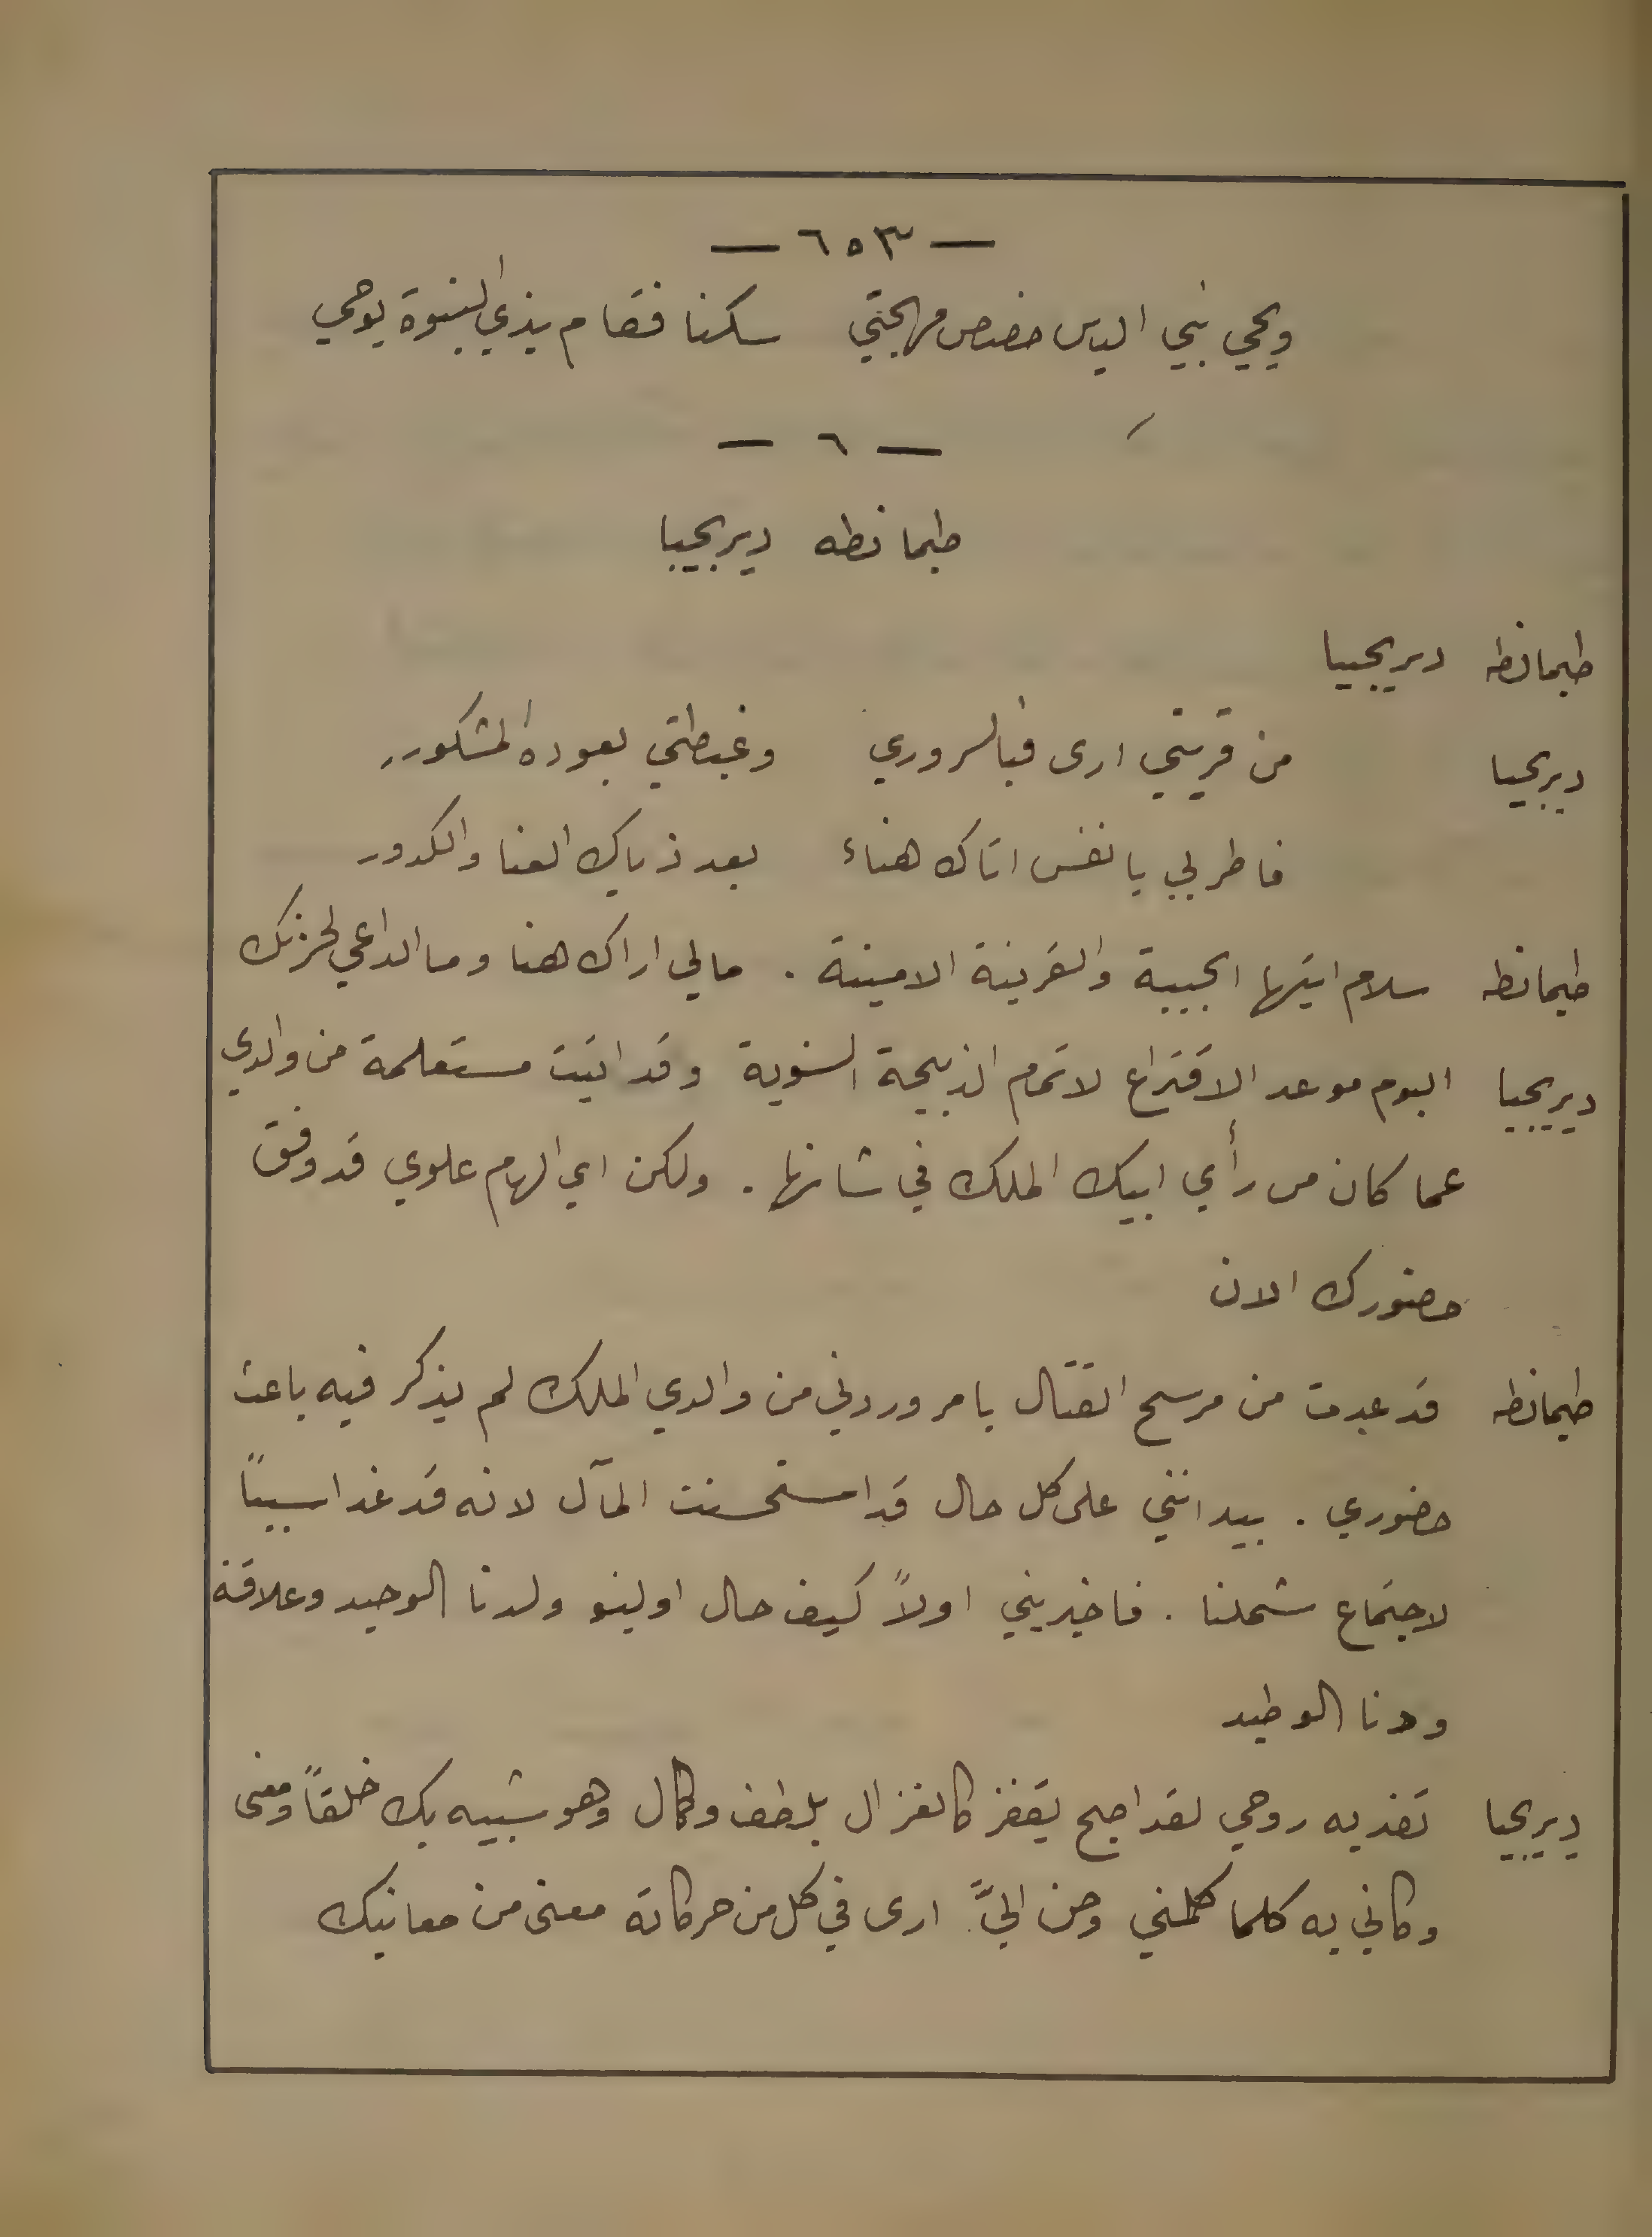 — ٦٥٣ —
ويحي بني الياس خضخض مهجتي سكنا فقام بذي البنوة يوحي
— ٦ —
طيمانطه ديريجيا
طيمانطه ديريجيا
ديريجيا من قريتي ارى فيا لسروري وغبطتي بعوده المشكور
فاطربي يا نفس اتاك هناء بعد ذياك العنا والكدور
طيمانطه سلام ايتها الحبيبة والقرينة الامينة . مالي اراك هنا وما الداعي لحزنك
ديريجيا اليوم موعد الاقتراع لاتمام الذبيحة السنوية وقد اتيت مستعلمة من والدي
عما كان من رأي ابيك الملك في شانها . ولكن اي الهام علوي قد وفق
حضورك الان
طيمانطه قد عدت من مرسح القتال بامر وردني من والدي الملك لم يذكر فيه باعث
حضوري . بيد انني على كل حال قد استحسنت المآل لانه قد غدا سبباً
لاجتماع شملنا . فاخبريني اولاً كيف حال اولينو ولدنا الوحيد وعلاقة
ودنا الوطيد
ديريجيا تفديه روحي لقد اصبح يقفز كالغزال بلطف وكمال وهو شبيه بك خلقاً ومعنى
وكاني به كلما كلمني وحن اليَّ ارى في كل من حركاته معنى من معانيك